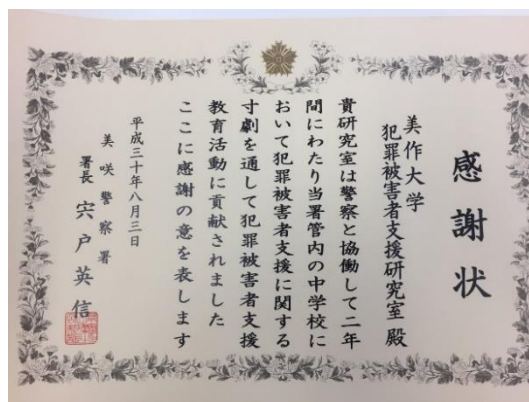 感謝状
美作大学
犯罪被害者支援研究室 殿
貴研究室は警察と協働して二年
間にわたり当署管内の中学校に
おいて犯罪被害者支援に関する
寸劇を通して犯罪被害者支援
教育活動に貢献されました
ここに感謝の意を表します
平成三十年八月三日
美咲警察署
署長 宍戸英信